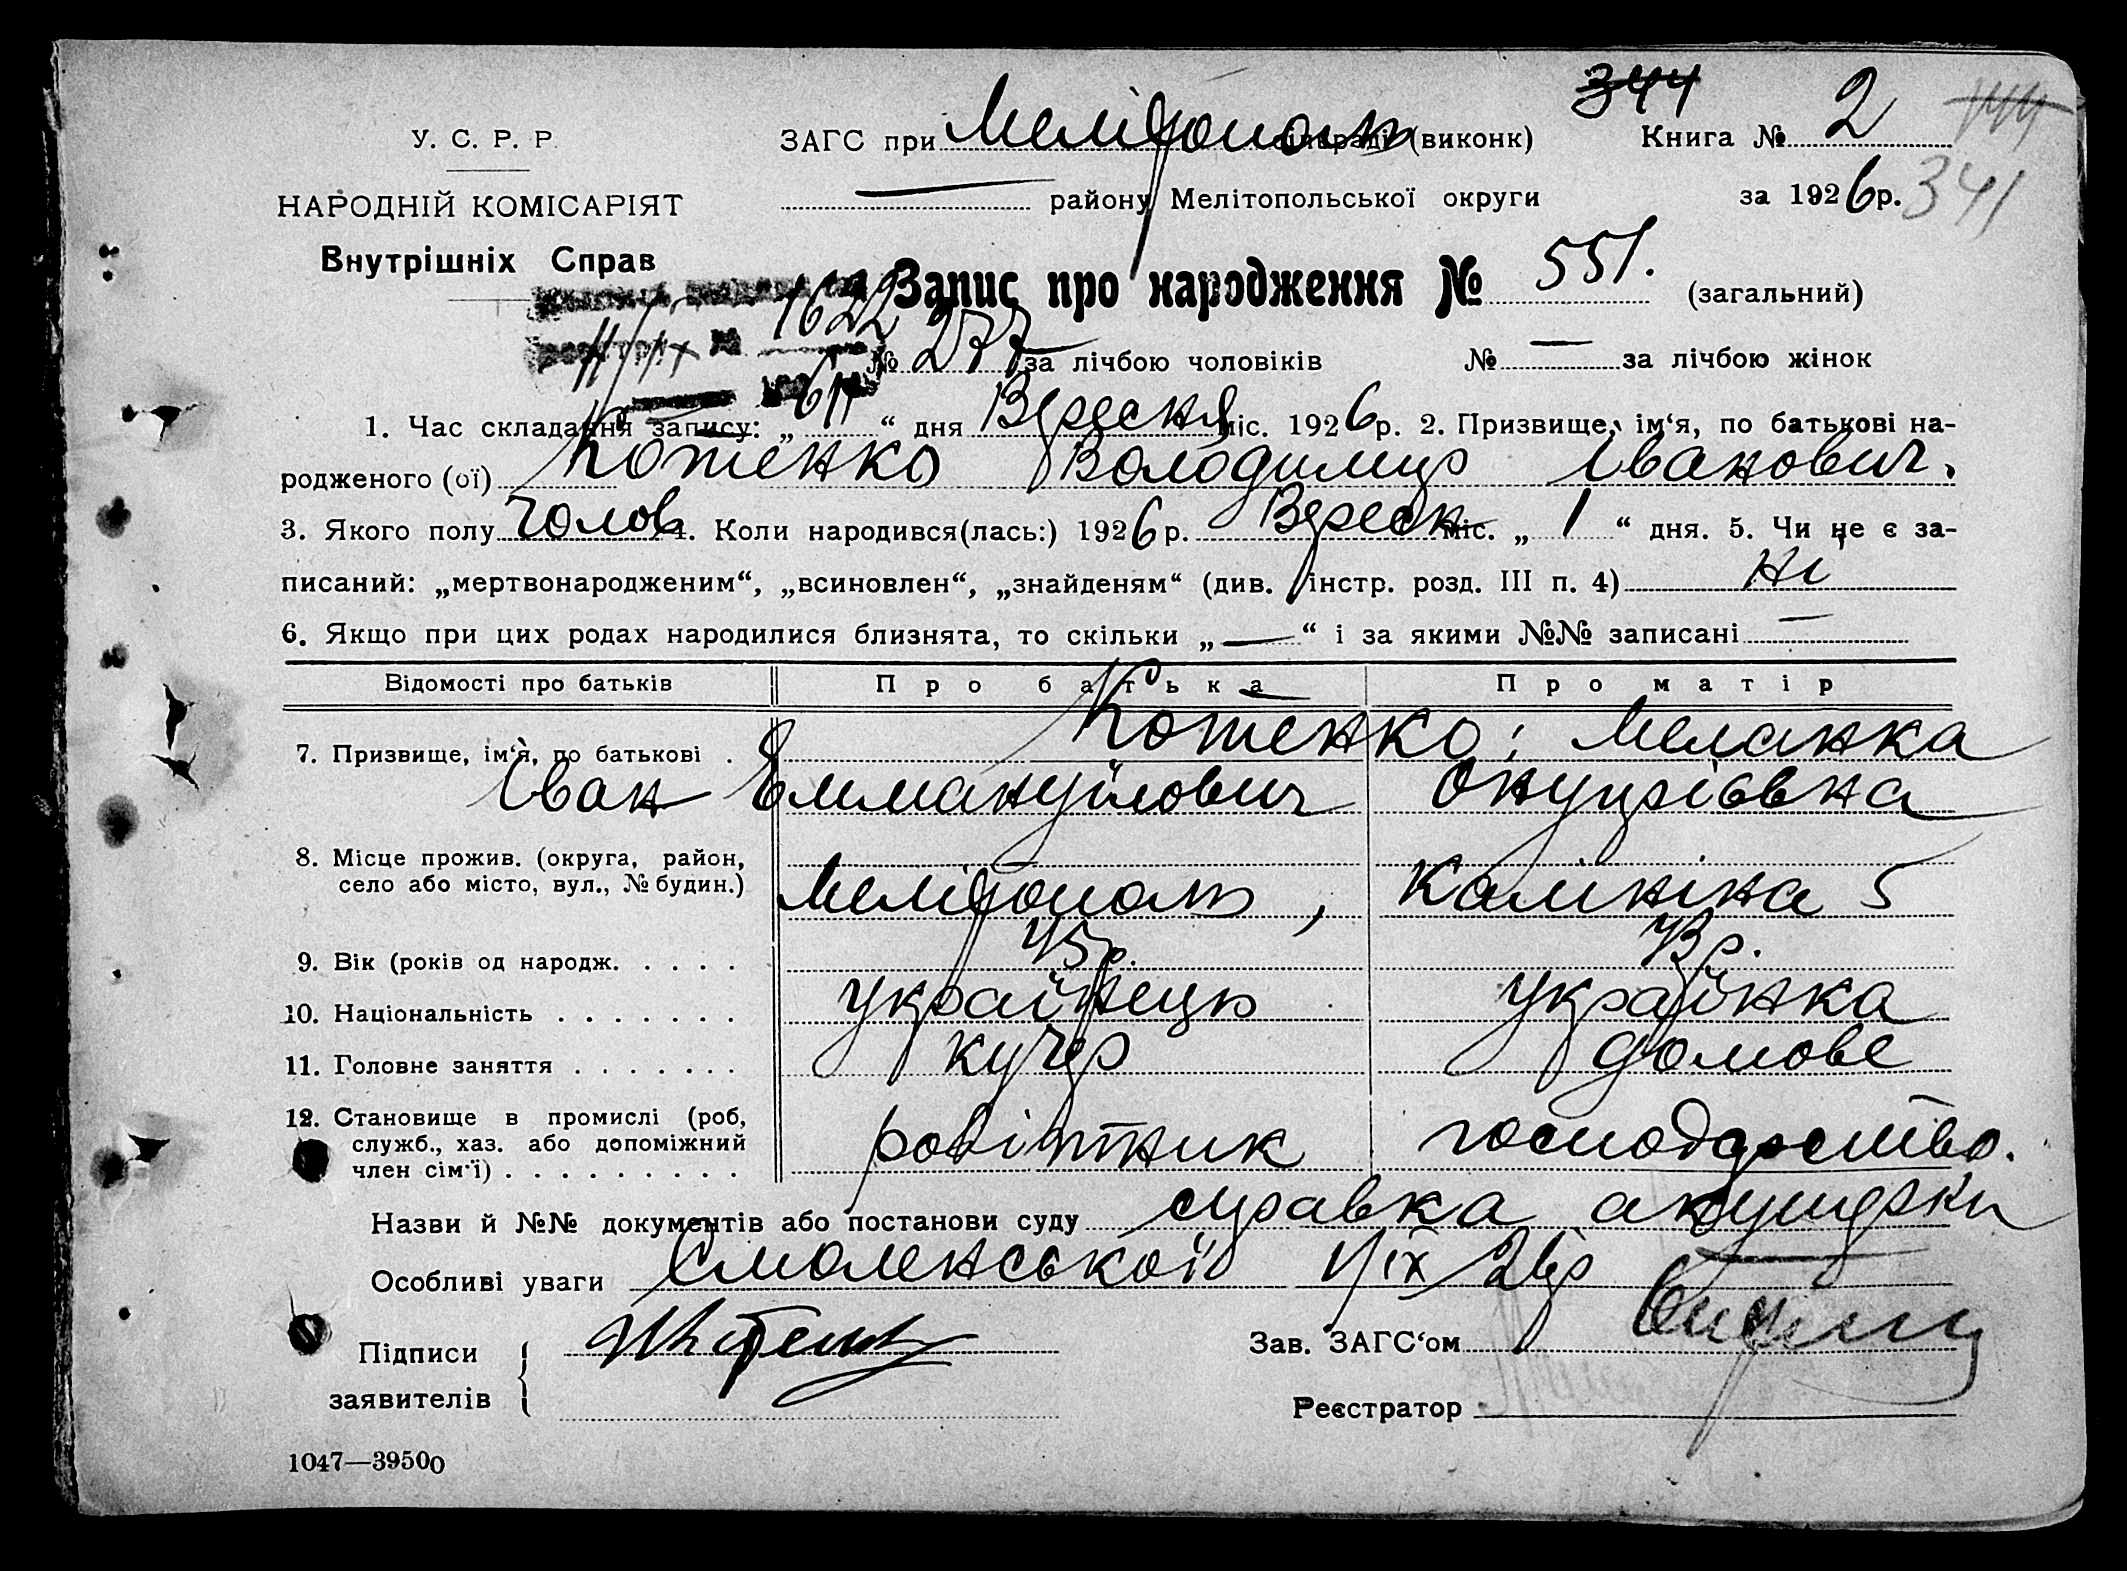 344
У. С. Р. Р. ЗАГС при Мелітополь сільраді (виконк) Книга № 2
НАРОДНІЙ КОМІСАРІЯТ району Мелітопольської округи за 1926р. 341
Внутрішніх Справ
Запис про народження № 551. (загальний)
1622
№ 277 за лічбою чоловіків № — за лічбою жінок
1. Час складання запису: „ “ дня Вересня міс. 1926р. 2. Призвище, ім‘я, по батькові на-
родженого (ої) Котенко Володимир Іванович.
3. Якого полу Чолов 4. Коли народився(лась:) 1926р. Вересн міс. „ 1 “ дня. 5. Чи не є за-
писаний: „мертвонародженим“, „всиновлен“, „знайденям“ (див. інстр. розд. III п. 4) Ні
6. Якщо при цих родах народилися близнята, то скільки „ — “ і за якими №№ записані —
Відомості про батьків Про батька Про матір
7. Призвище, ім‘я, по батькові . Котенко; Меланка
Іван Еммануїлович Онупріївна
8. Місце прожив. (округа, район,
село або місто, вул., № будин.) Мелітополь, Калініна 5
9. Вік (років од народж. . . . . 45р. 43р.
10. Національність . . . . . . . українець українка
11. Головне заняття . . . . . . . кучер домове
12. Становище в промислі (роб,
служб., хаз. або допоміжний робітник господарство.
член сім‘ї) . . . . . . . . .
Назви й №№ документів або постанови суду справка акушерки
Особливі уваги Смоленської 1/ІХ 26р
Підписи Зав. ЗАГС‘ом
заявителів Реєстратор
1047—39500